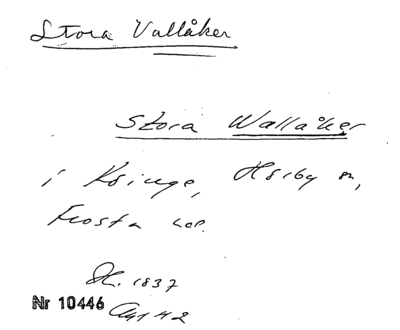 Stora Vallåker
Stora Wallåker
i Ksinge, Hörby sn,
Frosta hd.
H. 1837
Nr 10446